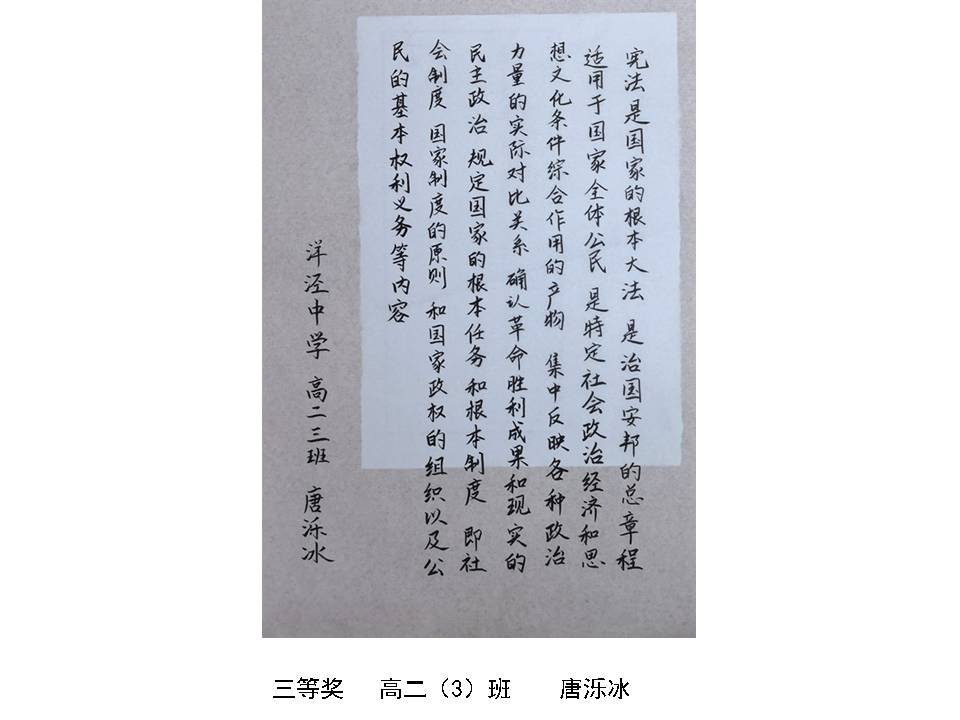 宪法是国家的根本大法 是治国安邦的总章程
适用于国家全体公民 是特定社会政治经济和思
想文化条件综合作用的产物 集中反映各种政治
力量的实际对比关系 确认革命胜利成果和现实的
民主政治 规定国家的根本任务和根本制度 即社
会制度 国家制度的原则 和国家政权的组织以及公
民的基本权利义务等内容
洋泾中学 高二三班 唐泺冰
三等奖 高二（3）班 唐泺冰